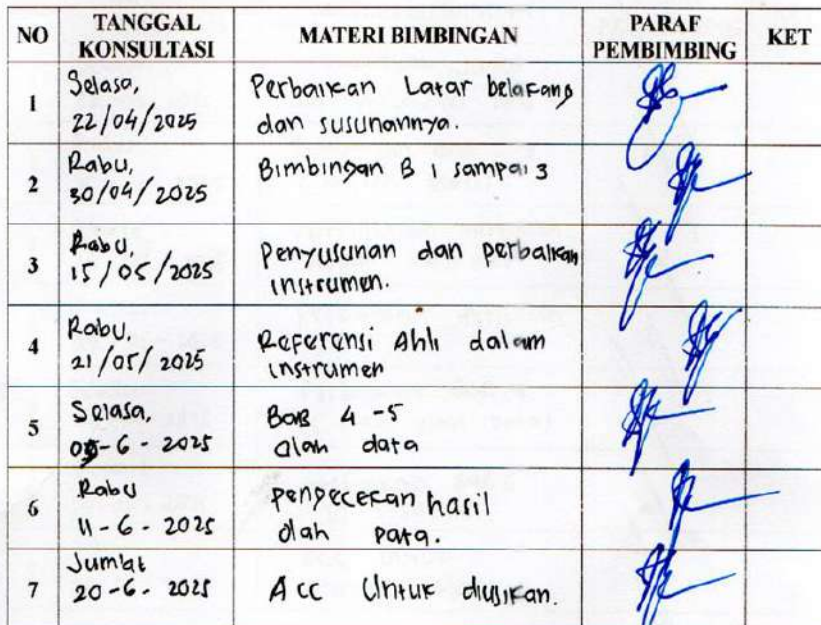 NO TANGGAL KONSULTASI MATERI BIMBINGAN PARAF PEMBIMBING KET
1 Selasa, 22/04/2025 Perbaikan Latar belakang dan susunannya.
2 Rabu, 30/04/2025 Bimbingan B 1 sampai 3
3 Rabu, 15/05/2025 Penyusunan dan perbaikan instrumen.
4 Rabu, 21/05/2025 Referensi Ahli dalam instrumen
5 Selasa, -6-2025 BAB 4-5 olah data
6 Rabu 11-6-2025 pengecekan hasil olah data.
7 Jumlat 20-6-2025 Acc Untuk diujikan.